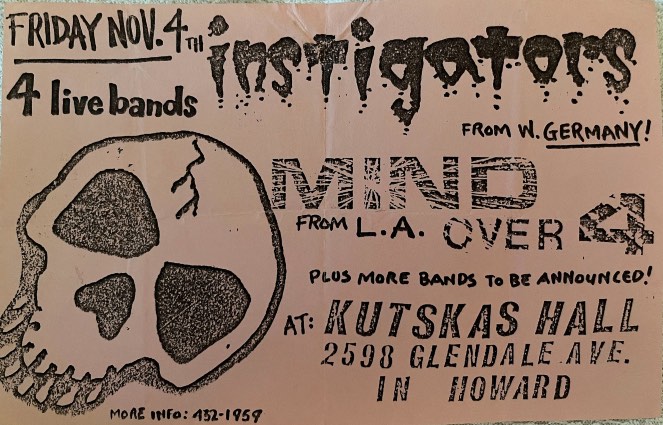 FRIDAY NOV. 4TH
instigators
4 live bands
FROM W. GERMANY!
MIND
FROM L.A. OVER 4
PLUS MORE BANDS TO BE ANNOUNCED!
AT: KUTSKAS HALL
2598 GLENDALE AVE.
IN HOWARD
MORE INFO: 432-1959